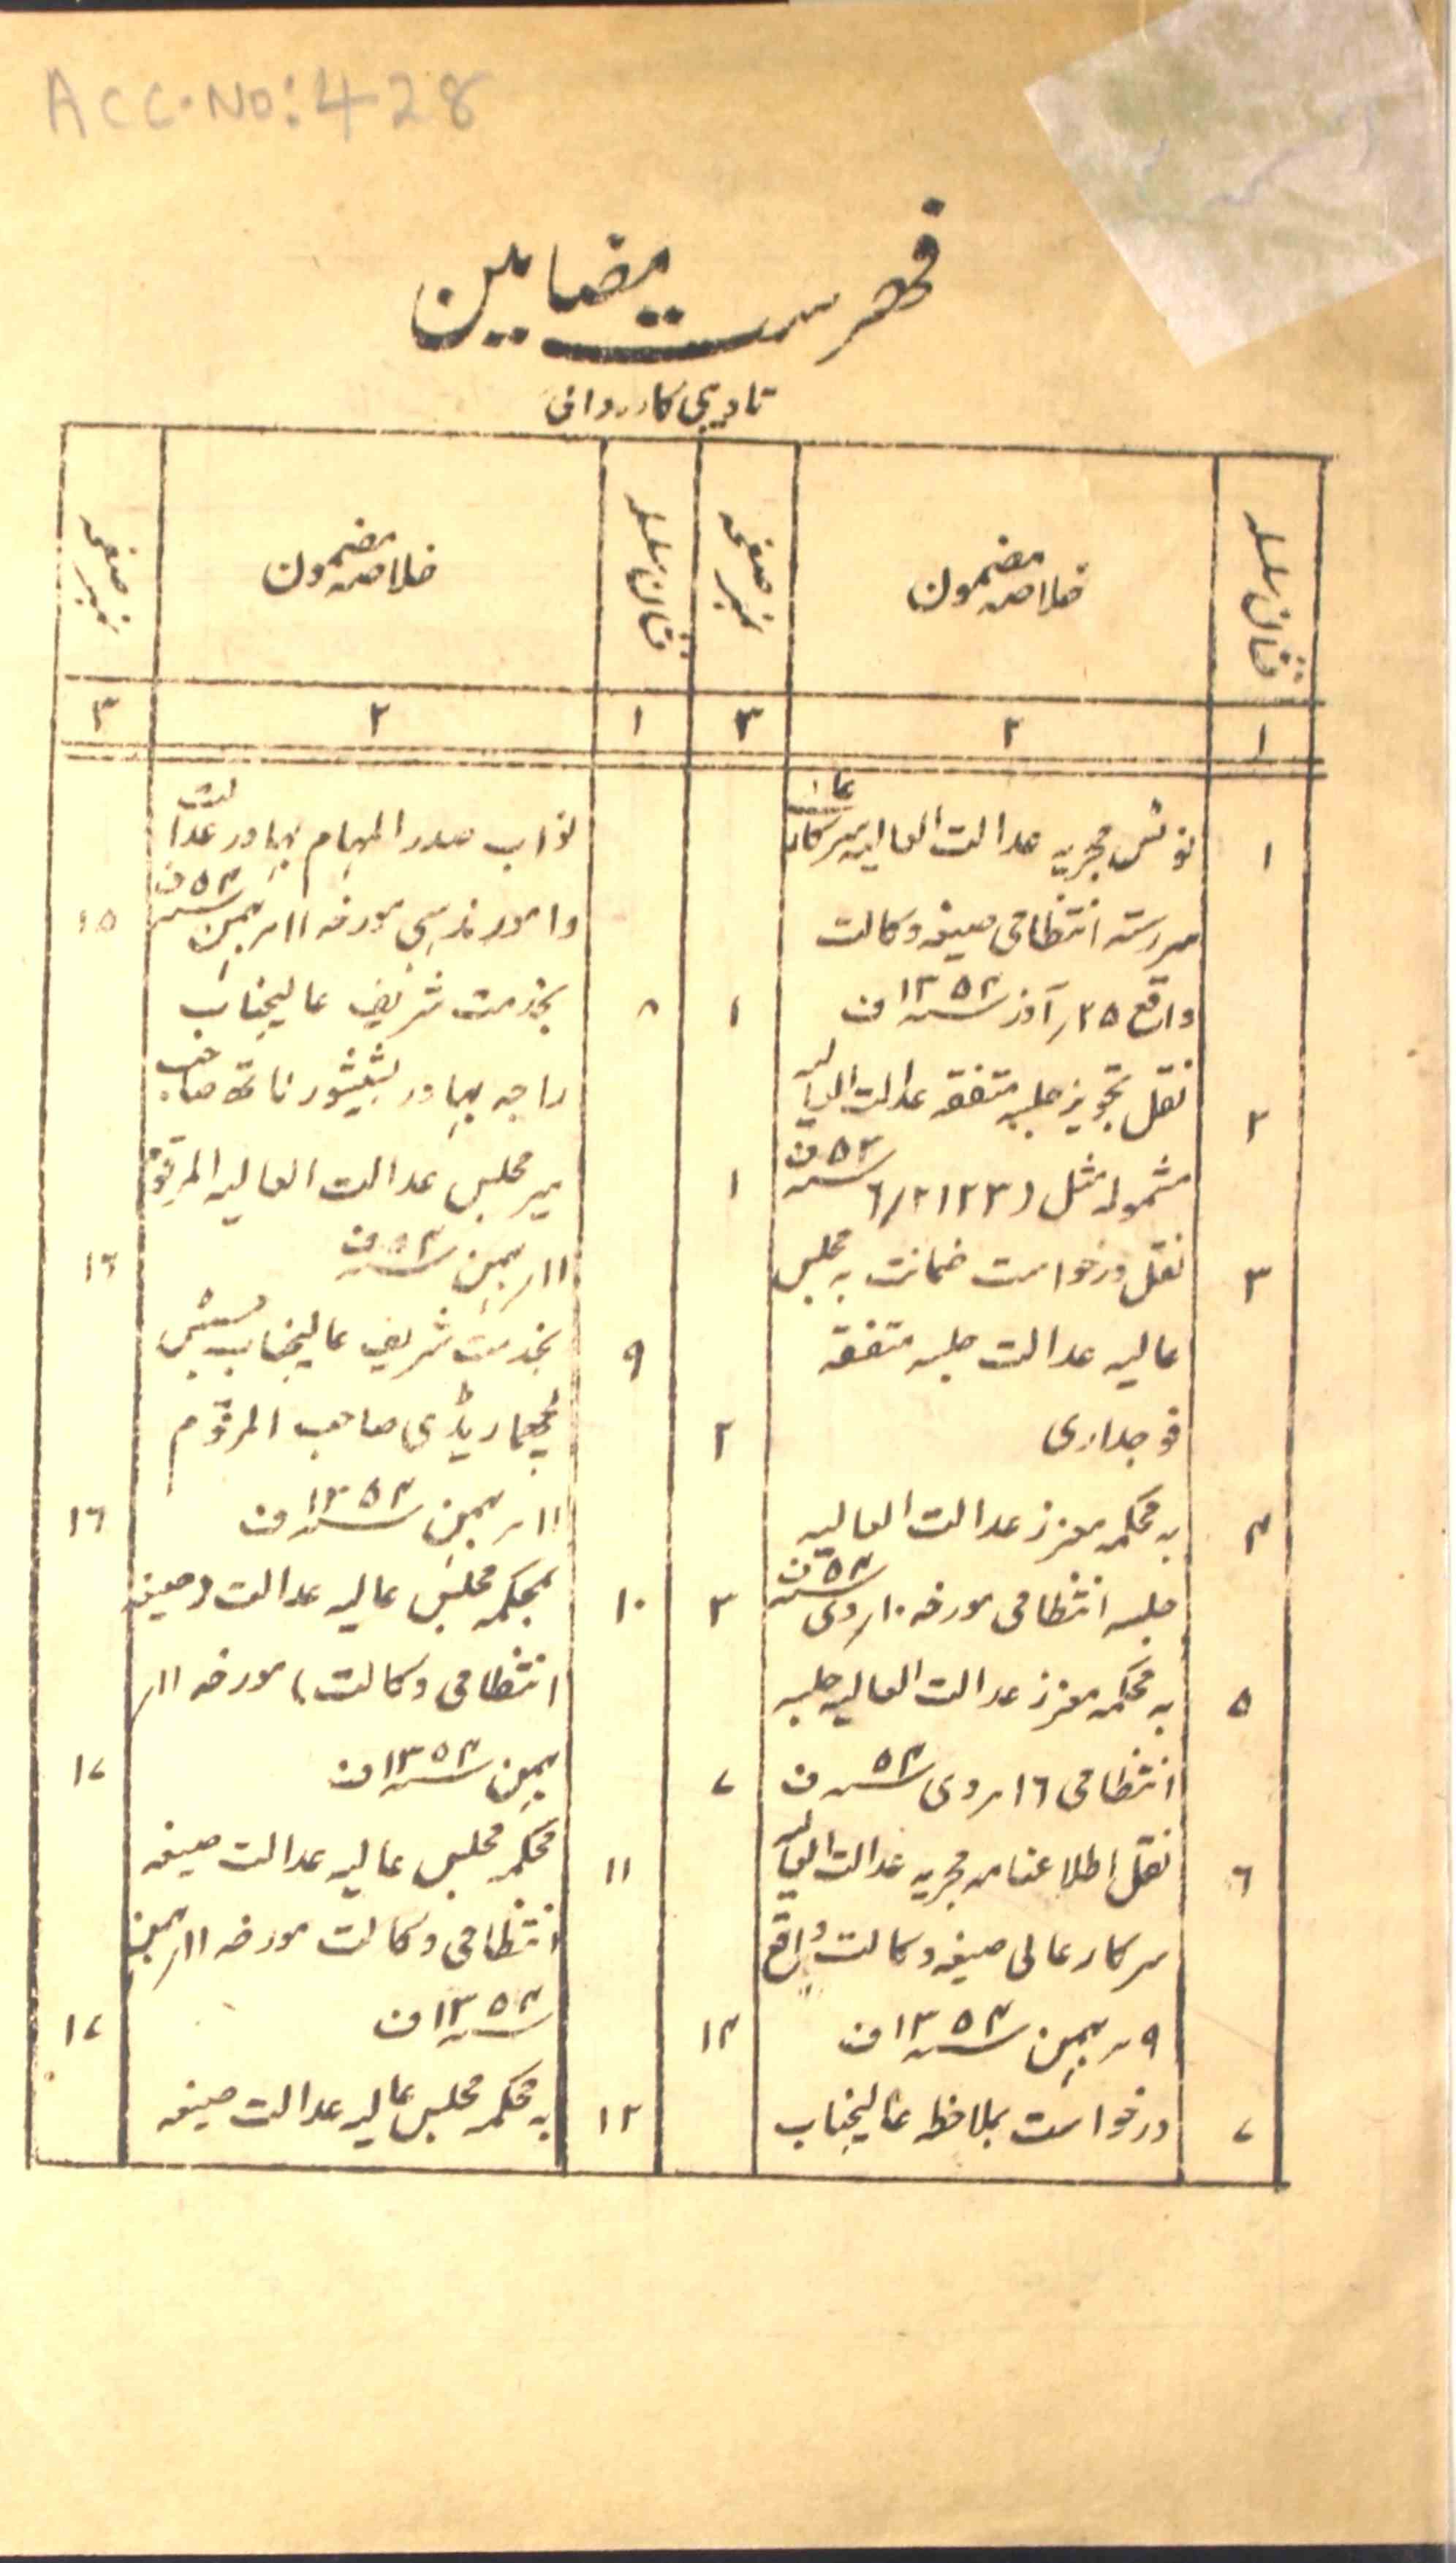 Acc. No: 428
فہرست مضامین
تادیبی کارروائی
نشان سلسلہ
خلاصہ مضمون
نمبر صفحہ
۱
۲
۳
۱ نوٹس مجریہ عدالت العالیہ سرکار عالی
سررشتہ انتظامی صیغہ وکالت
واقع ۲۵؍ آذر ۱۳۵۴ ف ۱
۲ نقل تجویز جلسہ متفقہ عدالت العالیہ
مشمولہ مثل (۶/۲۱۲۳ ۵۳ ف ۱
۳ نقل درخواست ضمانت بہ مجلس
عالیہ عدالت جلسہ متفقہ
فوجداری ۲
۴ بہ محکمہ معزز عدالت العالیہ
جلسہ انتظامی مورخہ ۱۰؍ دی ۵۴ ف ۳
۵ بہ محکمہ معزز عدالت العالیہ جلسہ
انتظامی ۱۶؍ دی ۵۴ ف ۷
۶ نقل اطلاعنامہ مجریہ عدالت العالیہ
سرکار عالی صیغہ وکالت واقع
۹؍ بہمن ۱۳۵۴ ف ۱۴
۷ درخواست بملاحظہ عالیجناب
نشان سلسلہ
خلاصہ مضمون
نمبر صفحہ
۱
۲
۳
نواب صدر المہام بہادر عدالت
وامور مذہبی مورخہ ۱۱؍ بہمن ۵۴ ف ۱۵
۸ بخدمت شریف عالیجناب
راجہ بہادر بشیشور ناتھ صاحب
میر مجلس عدالت العالیہ المرقوم
۱۱؍ بہمن ۵۴ ف ۱۶
۹ بخدمت شریف عالیجناب جسٹس
لچھما ریڈی صاحب المرقوم
۱۱؍ بہمن ۱۳۵۴ ف ۱۶
۱۰ بمحکمہ مجلس عالیہ عدالت (صیغہ
انتظامی وکالت) مورخہ ۱۱؍
بہمن ۱۳۵۴ ف ۱۷
۱۱ محکمہ مجلس عالیہ عدالت صیغہ
انتظامی وکالت مورخہ ۱۱؍ بہمن
۱۳۵۴ ف ۱۷
۱۲ بہ محکمہ مجلس عالیہ عدالت صیغہ